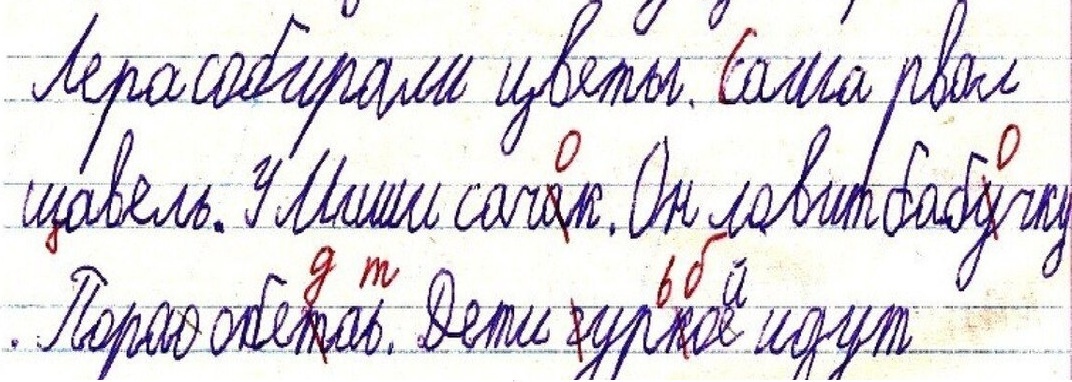 Лера собирали цветы. Саша рвал
о о
щавель. У Миши сачак. Он ловит бабучку
д т ь б й
. Пора обетаь. Дети гуркое идут